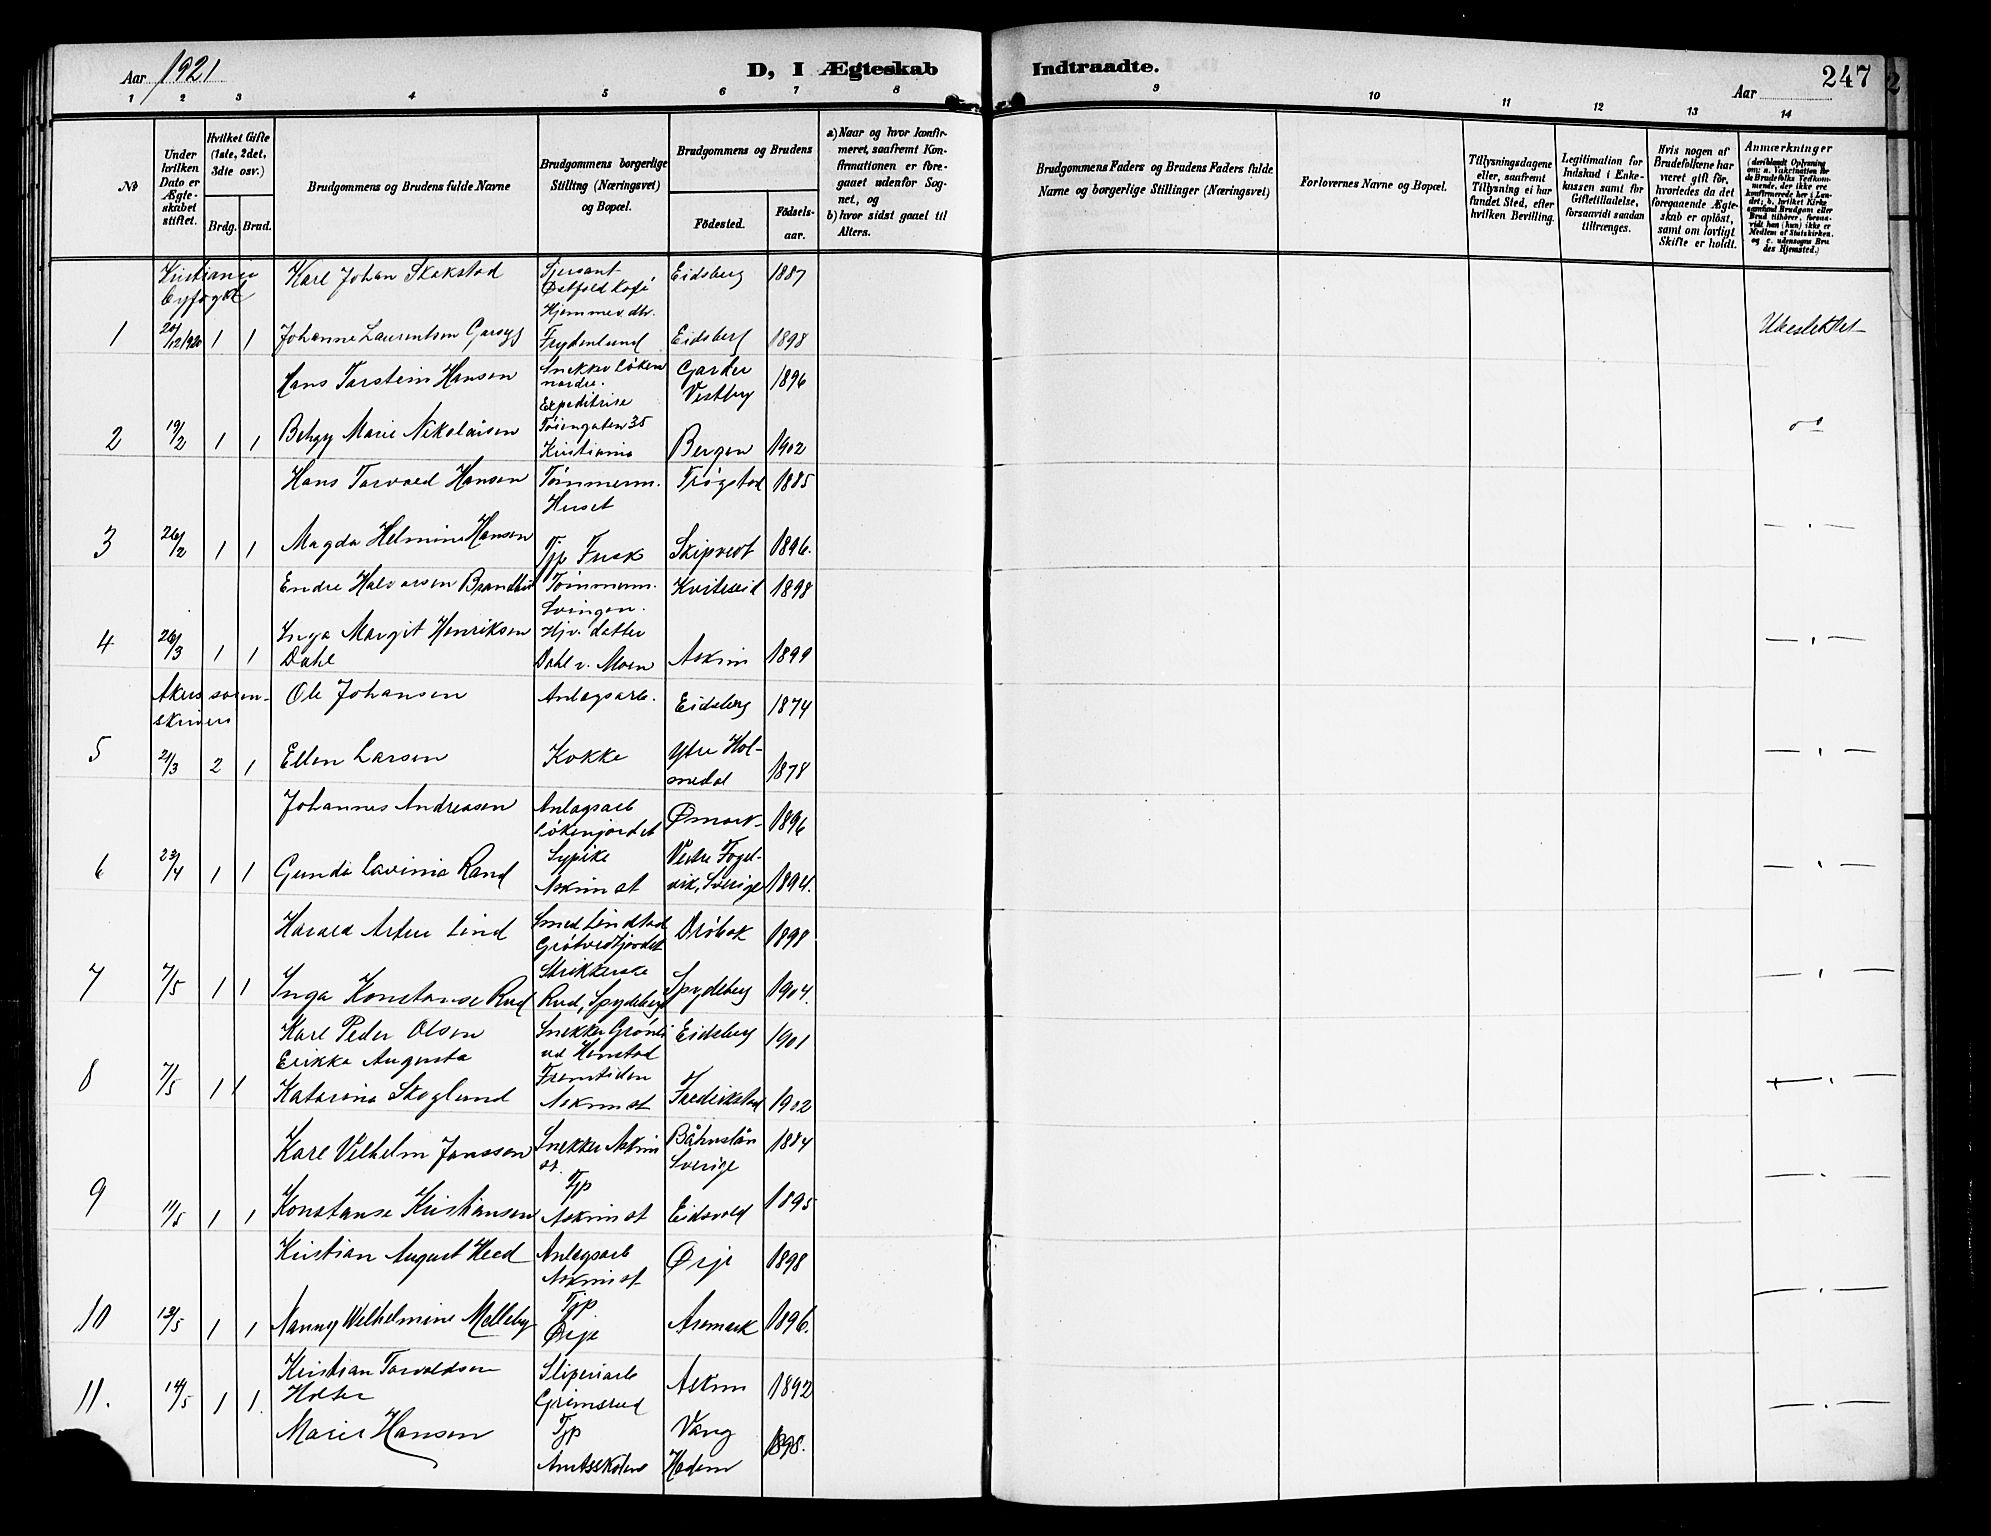 Aar 1921
D, I Ægteskab Indtraadte.
Aar
247
1 2 3 4 5 6 7 8 9 10 11 12 13 14
No
Under hvilken Dato er Ægteskabet stiftet.
Hvilket Gifte (1ste, 2det, 3die osv.)
Brdg. Brud.
Brudgommens og Brudens fulde Navne
Brudgommens borgerlige Stilling (Næringsvei) og Bopæl.
Brudgommens og Brudens
Födested.
Födsels-aar.
a) Naar og hvor konfirmeret, saafremt Konfirmationen er foregaaet udenfor Sognet, og
b) hvor sidst gaaet til Alters.
Brudgommens Faders og Brudens Faders fulde Navne og borgerlige Stillinger (Næringsvei)
Forlovernes Navne og Bopæl.
Tillysningsdagene eller, saafremt Tillysning ei har fundet Sted, efter hvilken Bevilling.
Legitimation for Indskud i Enkekassen samt for Giftetilladelse, forsaavidt saadan tiltrænges.
Hvis nogen af Brudefolkene har været gift för, hvorledes da det foregaaende Ægteskab er oplöst, samt om lovligt Skifte er holdt.
Anmærkninger
Kristiania Byfogd Karl Johan Skakstad
Eidsberg 1887
Østfold Kafé
1 20/12 1920 1 1 Johanne Laurentsen
Hjemmev. dtr.
Frydenlund Eidsberg 1898
Ubeslektet
Hans Torstein Hansen Snekker Løken
nordre. Garder
Vestby 1896
2 19/2 1 1 Marie Nikolaisen
Expeditrise
Tøiengaten 35
Kristiania Bergen 1902
Hans Torvald Hansen Tømmerm.
Huset Trøgstad 1885
3 26/2 1 1 Magda Helmine Hansen Tjp Fusk Skiptvedt 1896.
Endre Halvorsen Tømmerm.
Svingen. Kviteseid 1898
4 26/3 1 1 Inga Margit Henriksen
Dahl Hjv. datter
Dahl v. Moen Askim 1899
Akers sorenskriveri Ole Johansen Anlægsarb. Eidsberg 1874
5 21/3 2 1 Ellen Larsen Kokke Ytre Holmedal 1878
Johannes Andreasen Anlagsarb
Løkenjordet Ømark 1896
6 23/4 1 1 Gunda Lavinia Rand Sypike
Askim st Vestre Fogelvik, Sverige 1894.
Harald Artur Lind Smed Lindstad
Grøtvedtjordet Drøbak 1898
7 7/5 1 1 Inga Konstanse Rud Strikkerske
Rud, Spydeberg Spydeberg 1904.
Karl Peder Olsen Snekker Grønli
ved Henstad Eidsberg 1901
8 7/5 1 1 Erikka Augusta
Katarina Skoglund Fremtiden
Askim st Fredrikstad 1902
Karl Vilhelm Jansson Snekker Askim
st. Båhuslän
Sverige 1884
9 11/5 1 1 Konstanse Kristiansen Tjp
Askim st Eidsvold 1895
Kristian August Heed Anlagsarb
Askim st Ørje 1898
10 13/5 1 1 Nanny Wilhelmine Melleby Tjp
Ørje Aremark 1896.
Kristian Torvaldsen
Holter Sliperiarb
Grimsrud Askim 1892
11. 14/5 1 1. Marie Hansen Tjp
Amtsskolen Vang
Hedem 1898.